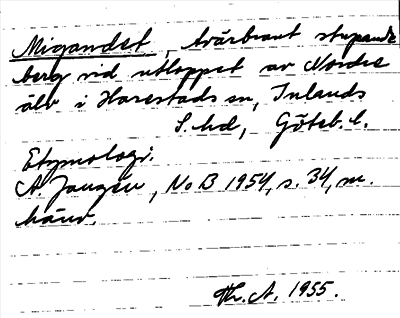 Migandet, tvärbrant stupande
berg vid utloppet av Nordre
älv i Harestads sn, Inlands
S. hd, Göteb. l.
Etymologi:
A. Janzén, NoB 1954, s. 34, m.
hänv.
Th. A. 1955.